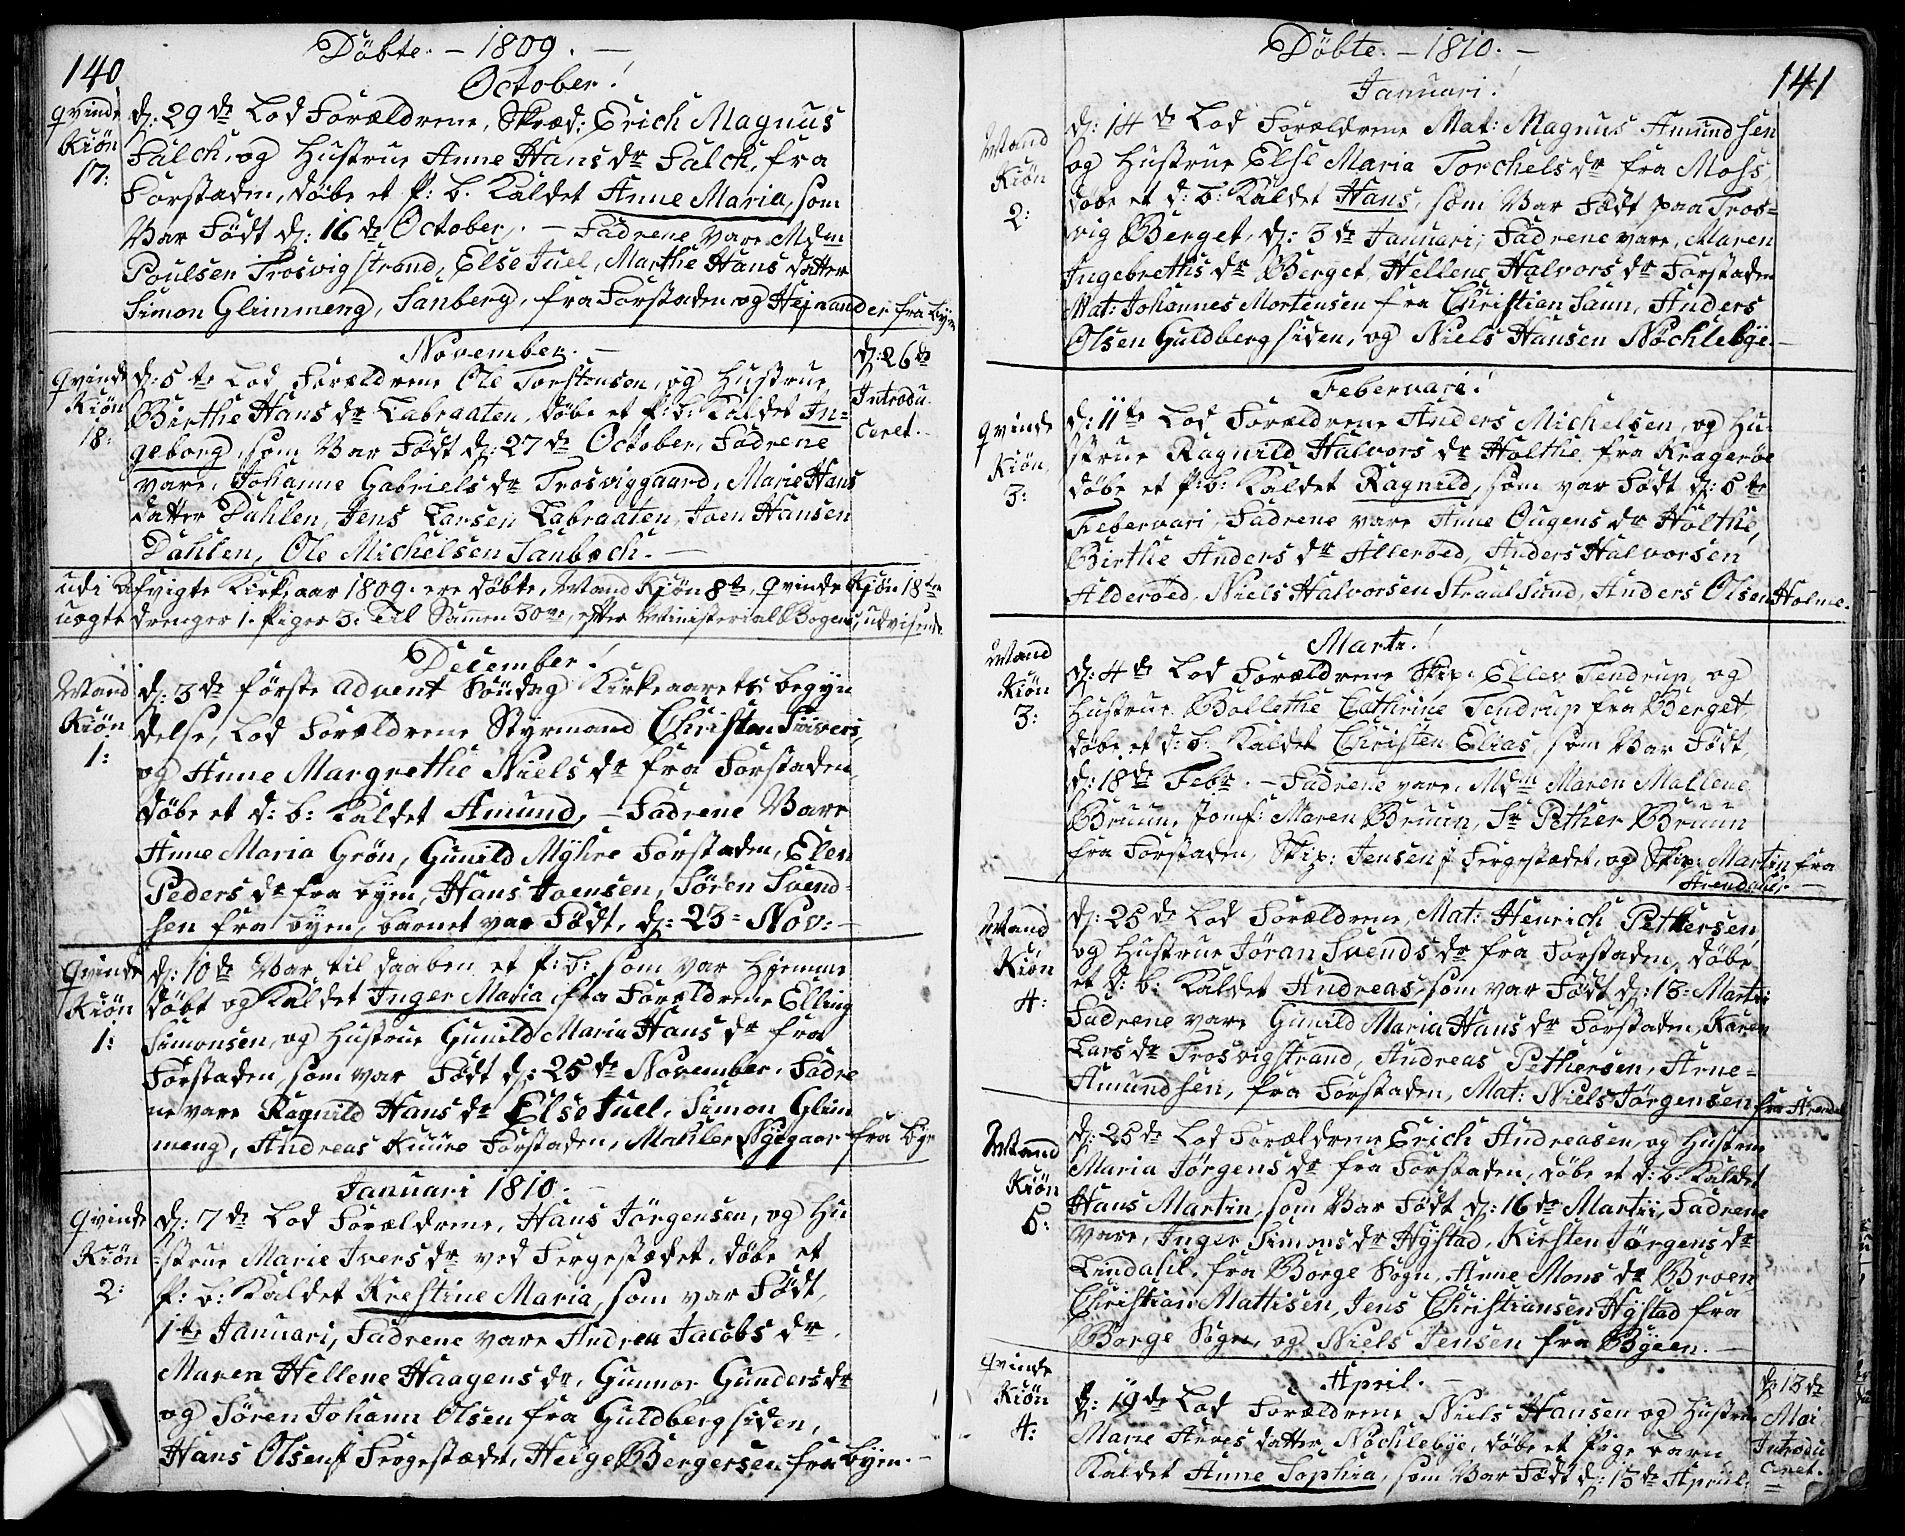 140
Döbte. – 1809. –
October!
Qvinde Kiön 17:
d: 29de Lod Forældrene, Skræd: Erich Magnus
Falch, og Hustrue Anne Hans dr Falch, fra
Forstaden, döbe et p: b. Kaldet Anne Maria, som
Var Födt d: 16de October, – Fadrene vare Mdm
Poulsen Trosvigstrand, Else Juel, Marthe Hans datter
Simon Glimmeng, Sanberg, fra Forstaden og Hejnander fra Byen
November. –
Qvinde Kiön 18:
d: 5te Lod Forældrene Ole Torstensen, og Hustrue
Birthe Hans dr Labraaten, döbe et p: b: Kaldet In=
geborg, som Var Födt d: 27de October, Fadrene
vare, Johanne Gabriels dr Trosviggaard, Marie Hans
datter Dahlen, Jens Larsen Labraaten, Joen Hansen
Dahlen, Ole Michelsen Sanbech. –
d: 26de
Introdu
ceret.
udi afvigte Kirkeaar 1809. ere döbte, Mand Kiön 8te, Qvinde Kiön 18ten
uægte drenger 1. Piger 3. Til Sammen 30ve, efter Ministerial Bogens, udvisende
December!
Mand Kiön 1:
d: 3de förste Advent Söndag Kirkeaarets begyn
delse, Lod Forældrene Styrmand Christen Siivers,
og Anne Margrethe Niels dr fra Forstaden,
döbe et d: b: Kaldet Amund, – Fadrene Vare
Anne Maria Grön, Gunild Myhre Forstaden, Elen
Peders dr fra byen, Hans Joensen, Sören Svend-
sen fra byen, barnet var Födt, d: 23= Nov: –
Qvinde Kiön 1:
d: 10de Var til daaben et p: b: som var hjemme
döbt og Kaldet Inger Maria, fra Forældrene Elling
Simonsen, og Hustrue Gunild Maria Hans dr fra
Forstaden, som var Födt d: 25de November. Fadre
ne vare Ragnild Hans dr Else Juel, Simon Glim
meng, Andreas Kuure Forstaden, Mahler Nygaar fra Bye
Januari 1810. –
Qvinde Kiön 2:
d: 7de Lod Forældrene, Hans Jörgensen, og Hu
strue Marie Ivers dr ved Fergestædet, döbe et
p: b: Kaldet Krestine Maria, som var Födt,
1te Januari, Fadrene vare Andrea Jacobs dr
Maren Hellene Haagens dr, Gunnor Gunders dr
og Sören Johann Olsen fra Guldbergsiden,
Hans Olsen Fergestædet, Helge Bergersen fra Byen. –
141
Döbte. – 1810. –
Januari!
Mand Kiön 2:
d: 14de Lod Forældrene Mat: Magnus Amundsen
og Hustrue Else Maria Torchels dr fra Moss,
döbe et d: b: Kaldet Hans, som Var Födt paa Tros=
vig Berget, d: 3de Januari, Fadrene vare, Maren
Ingebreths dr Berget, Hellene Halvors dr Forstaden
Mat: Johannes Mortensen fra Christian Sann, Anders
Olsen Guldbergsiden, og Niels Hansen Nöchlebye. –
Febervari!
Qvinde Kiön 3:
d: 11te Lod Forældrene Anders Michelsen, og Hu-
strue Ragnild Halvors dr Holthe, fra Krageröe
döbe et p: b: Kaldet Ragnild, som var Födt d: 5te
Febervari, Fadrene vare Anne Ougens dr Holthe,
Birthe Anders dr Alleröed, Anders Halvorsen
Alderöed, Niels Halvorsen Straal Sund, Anders Olsen Holme.
Marti!
Mand Kiön 3:
d: 4de Lod Forældrene Skip: Ellev Tendrup, og
Hustrue Bollethe Cathrine Tendrup fra Berget,
döbe et d: b: Kaldet Christen Elias, som Var Födt,
d: 18de Febr. – Fadrene vare, Mdm Maren Mallene
Bruun, Jomf: Maren Bruun, Sr Pether Bruun
fra Forstaden, Skip: Jensen Fergestædet, og Skip: Martin fra
Arendahl. –
Mand Kiön 4:
d: 25de Lod Forældrene, Mat: Henrich Pethersen
og Hustrue Jöran Svends dr fra Forstaden, döbe
et d: b: Kaldet Andreas, som var Födt d: 13= Marti
Fadrene vare Gunild Maria Hans dr Forstaden, Karen
Lars dr Trosvigstrand, Andreas Pethersen, Arne=
Amundsen, fra Forstaden, Mat: Niels Jörgensen fra Arendal
Mand Kiön 5:
d: 25de Lod Forældrene Erich Andreasen, og Hustrue
Maria Jörgens dr fra Forstaden, döbe et d: b: Kaldet
Hans Martin, som Var Födt d: 16de Martii, Fadrene
Vare, Inger Simons dr Hystad, Kirsten Jörgens dr
Lindahl, fra Borge Sogn, Anne Mons dr Broen,
Christian Mattisen, Jens Christiansen Hystad fra
Borge Sogn, og Niels Jensen fra Byeen. –
April. –
Qvinde Kiön 4:
d: 19de Lod Forældrene Niels Hansen og Hustrue
Marie Arnes datter, Nöchlebye, döbe et Pige barn
Kaldet Anne Sophia, som Var Födt d: 13de April:
d: 13de
Mai
Introdu
ceret.